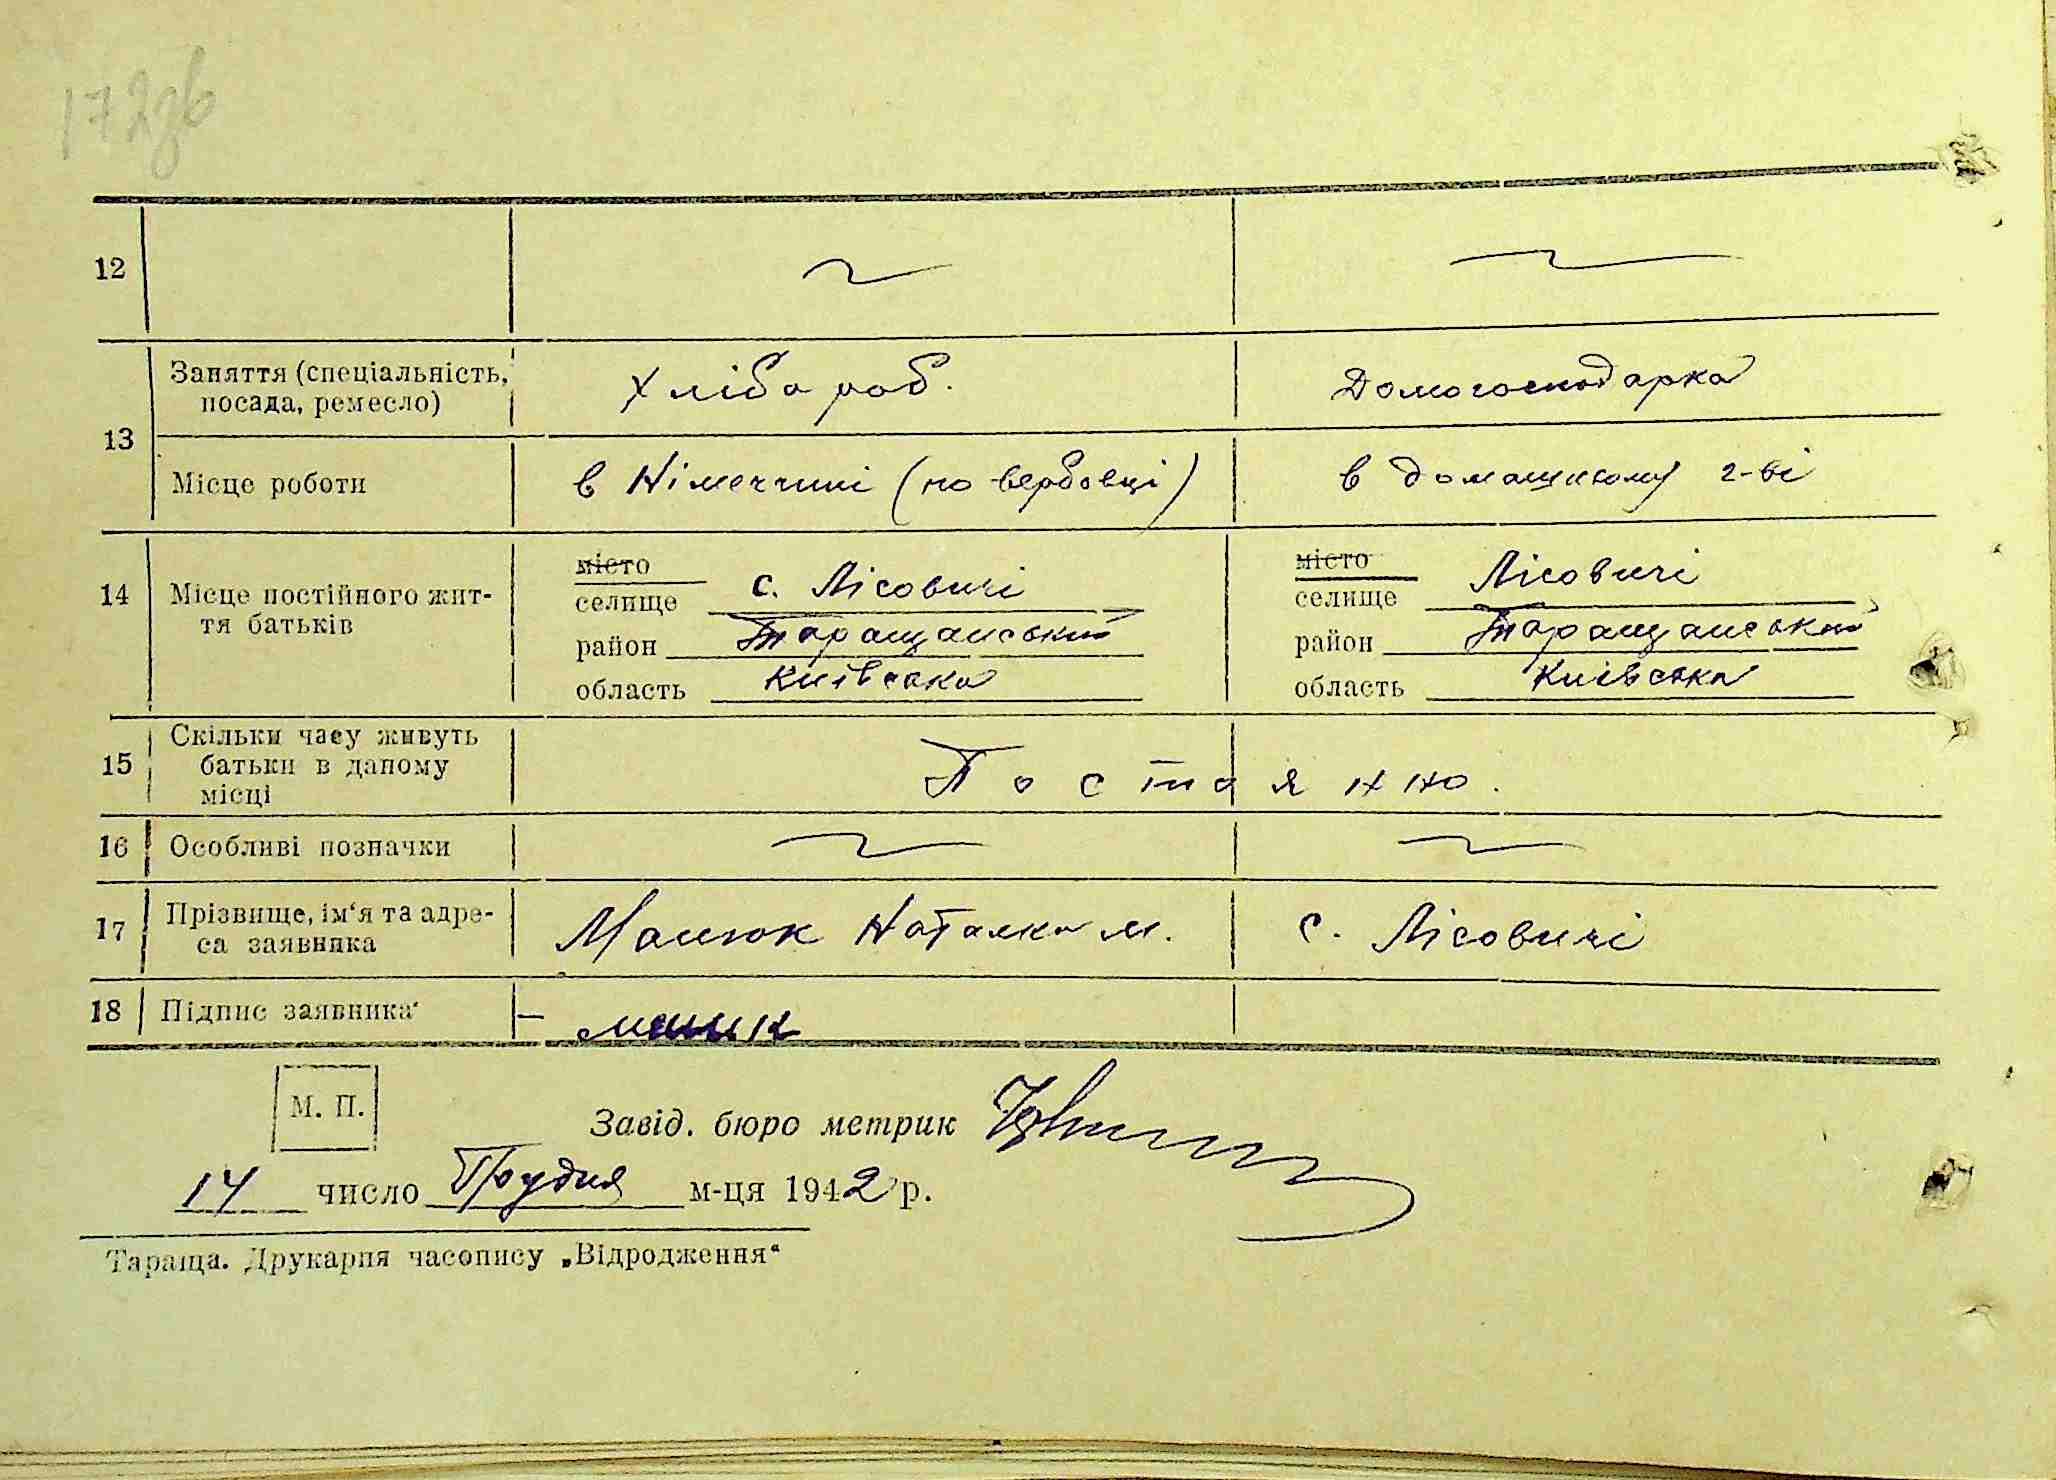 172зв
12
13 Заняття (спеціальність, посада, ремесло) Хлібороб. Домогосподарка
Місце роботи в Німеччині (по вербовці) в домашньому г-ві
14 Місце постійного життя батьків
місто місто
селище с. Лісовичі селище Лісовичі
район Таращанський район Таращанський
область Київська область Київська
15 Скільки часу живуть батьки в даному місці Постаянно.
16 Особливі позначки
17 Прізвище, ім'я та адреса заявника Манюк Наталка м. с. Лісовичі
18 Підпис заявника
М. П.
Завід. бюро метрик
14 число Грудня м-ця 1942 р.
Тараща. Друкарня часопису „Відродження“